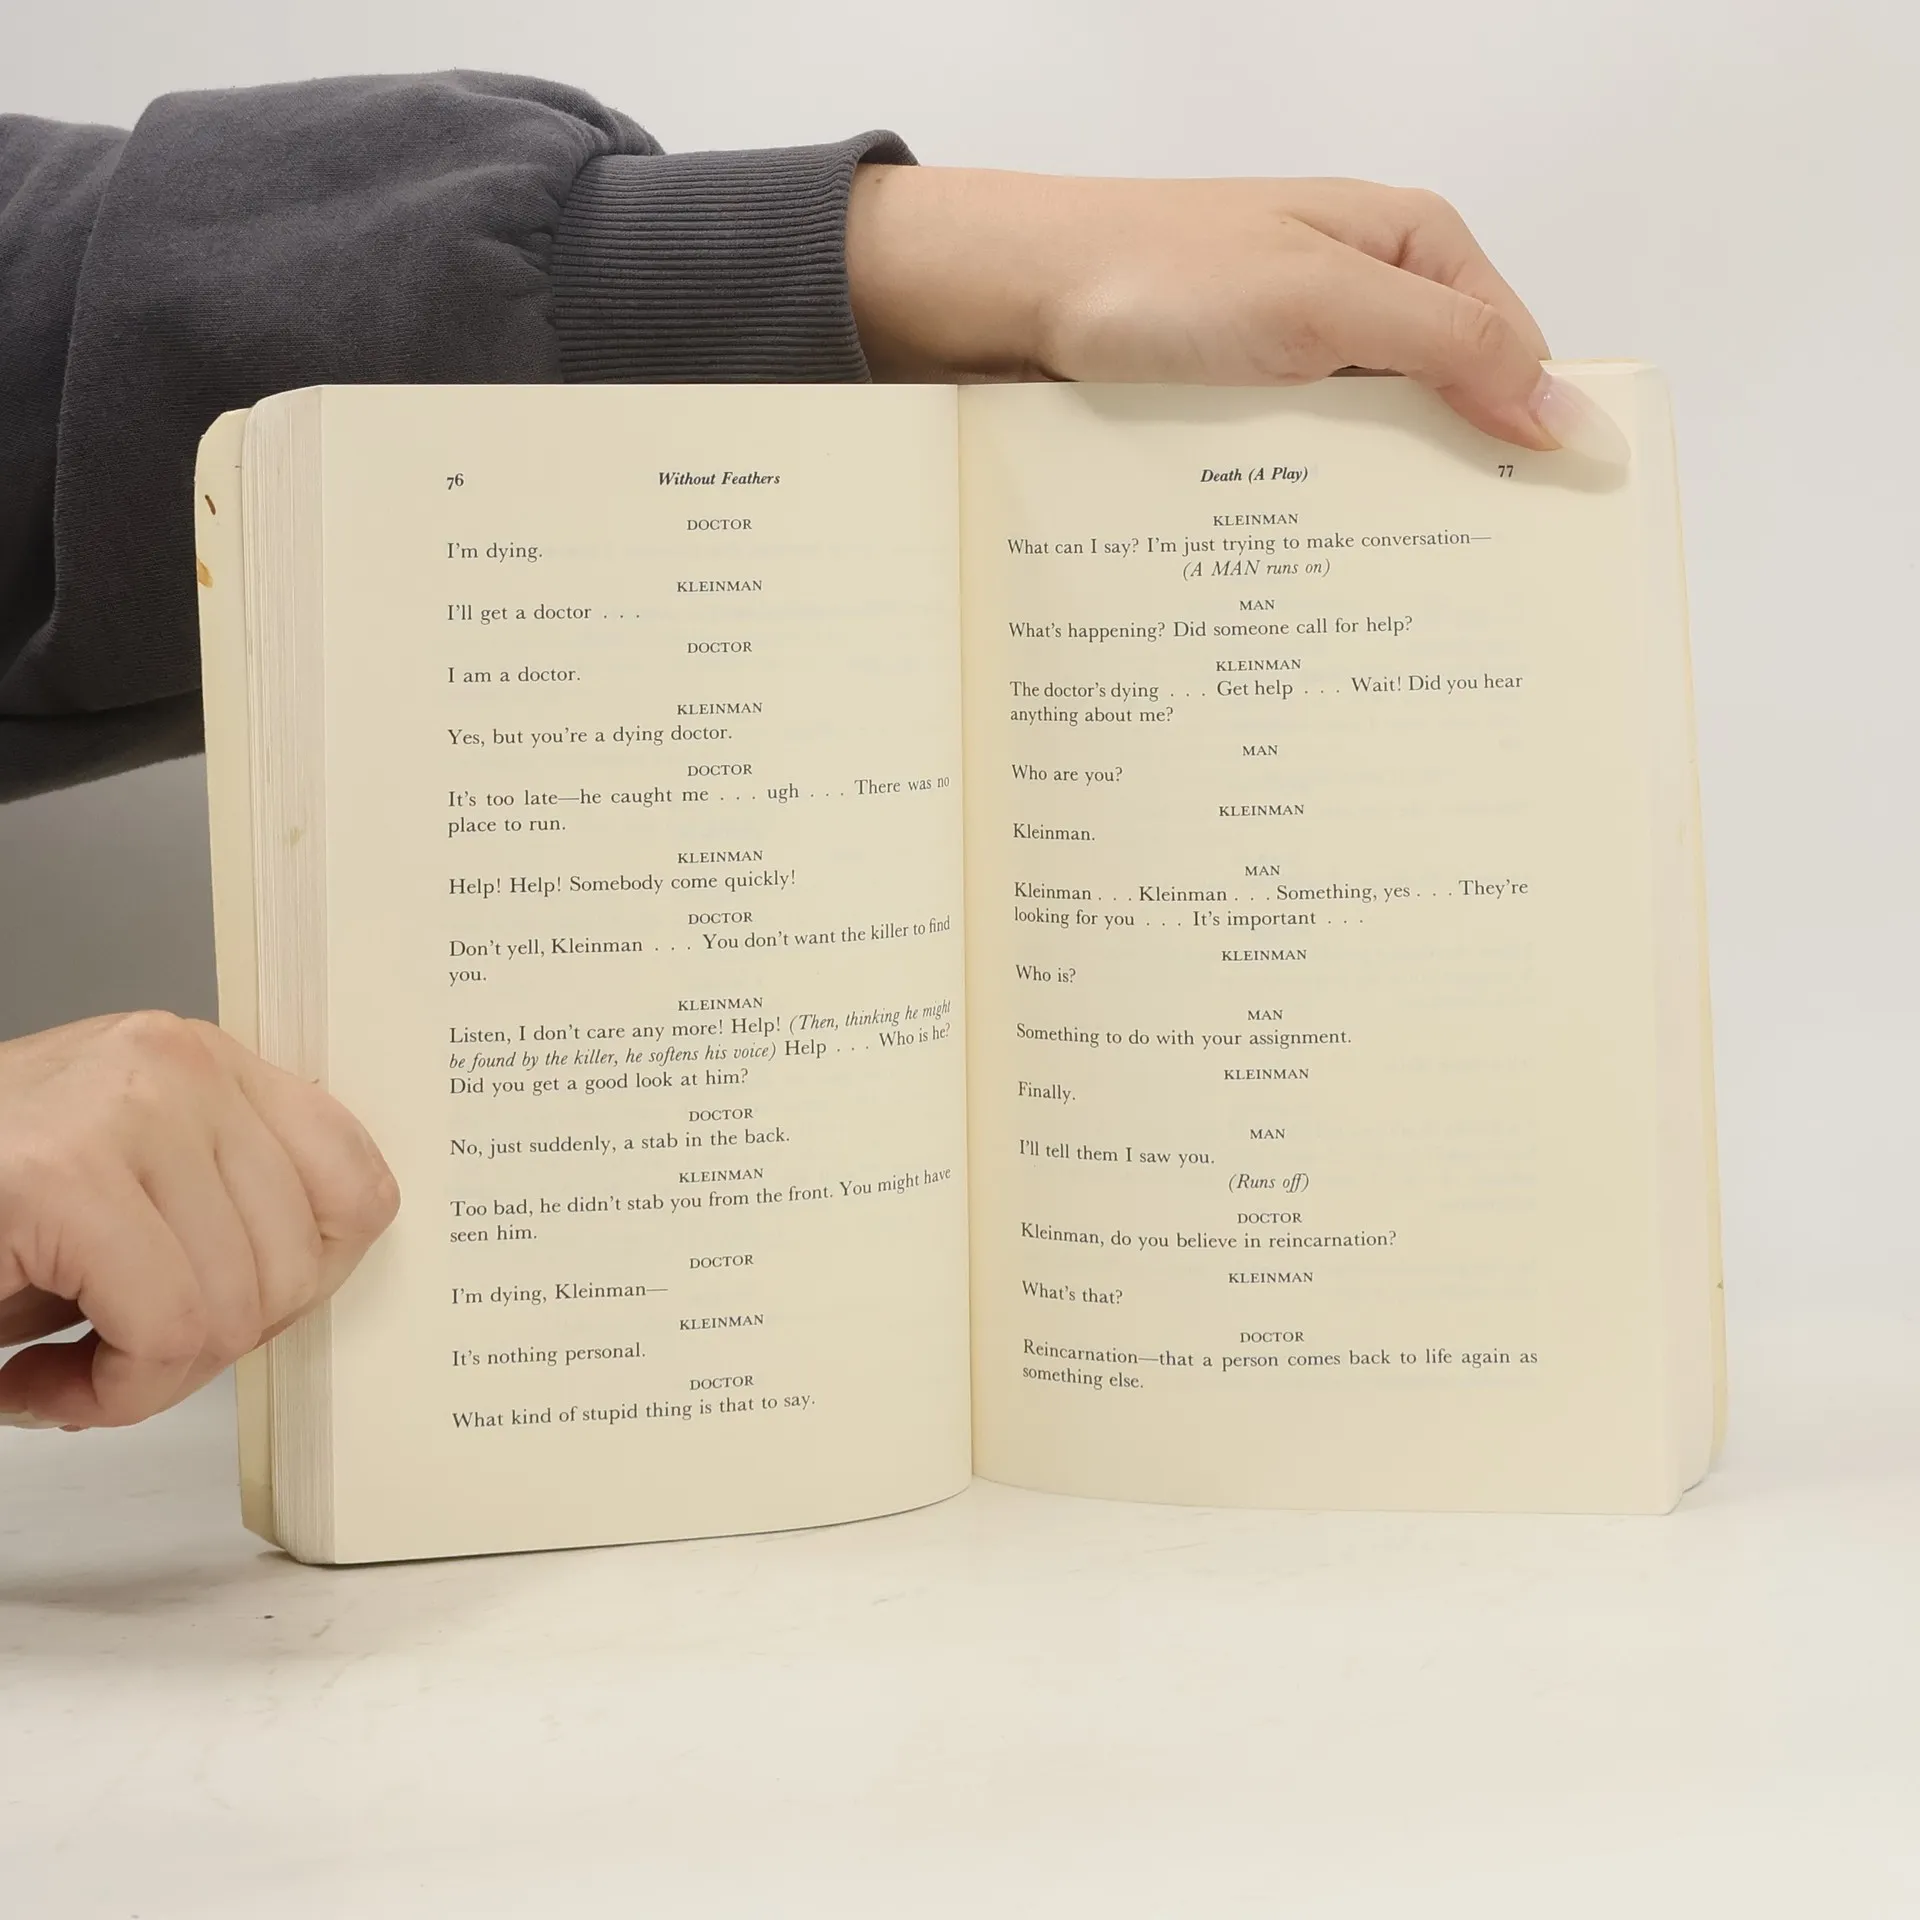 76 Without Feathers
DOCTOR
I'm dying.
KLEINMAN
I'll get a doctor . . .
DOCTOR
I am a doctor.
KLEINMAN
Yes, but you're a dying doctor.
DOCTOR
It's too late—he caught me . . . ugh . . . There was no
place to run.
KLEINMAN
Help! Help! Somebody come quickly!
DOCTOR
Don't yell, Kleinman . . . You don't want the killer to find
you.
KLEINMAN
Listen, I don't care any more! Help! (Then, thinking he might
be found by the killer, he softens his voice) Help . . . Who is he?
Did you get a good look at him?
DOCTOR
No, just suddenly, a stab in the back.
KLEINMAN
Too bad, he didn't stab you from the front. You might have
seen him.
DOCTOR
I'm dying, Kleinman—
KLEINMAN
It's nothing personal.
DOCTOR
What kind of stupid thing is that to say.
Death (A Play) 77
KLEINMAN
What can I say? I'm just trying to make conversation—
(A MAN runs on)
MAN
What's happening? Did someone call for help?
KLEINMAN
The doctor's dying . . . Get help . . . Wait! Did you hear
anything about me?
MAN
Who are you?
KLEINMAN
Kleinman.
MAN
Kleinman . . . Kleinman . . . Something, yes . . . They're
looking for you . . . It's important . . .
KLEINMAN
Who is?
MAN
Something to do with your assignment.
KLEINMAN
Finally.
MAN
I'll tell them I saw you.
(Runs off)
DOCTOR
Kleinman, do you believe in reincarnation?
KLEINMAN
What's that?
DOCTOR
Reincarnation—that a person comes back to life again as
something else.